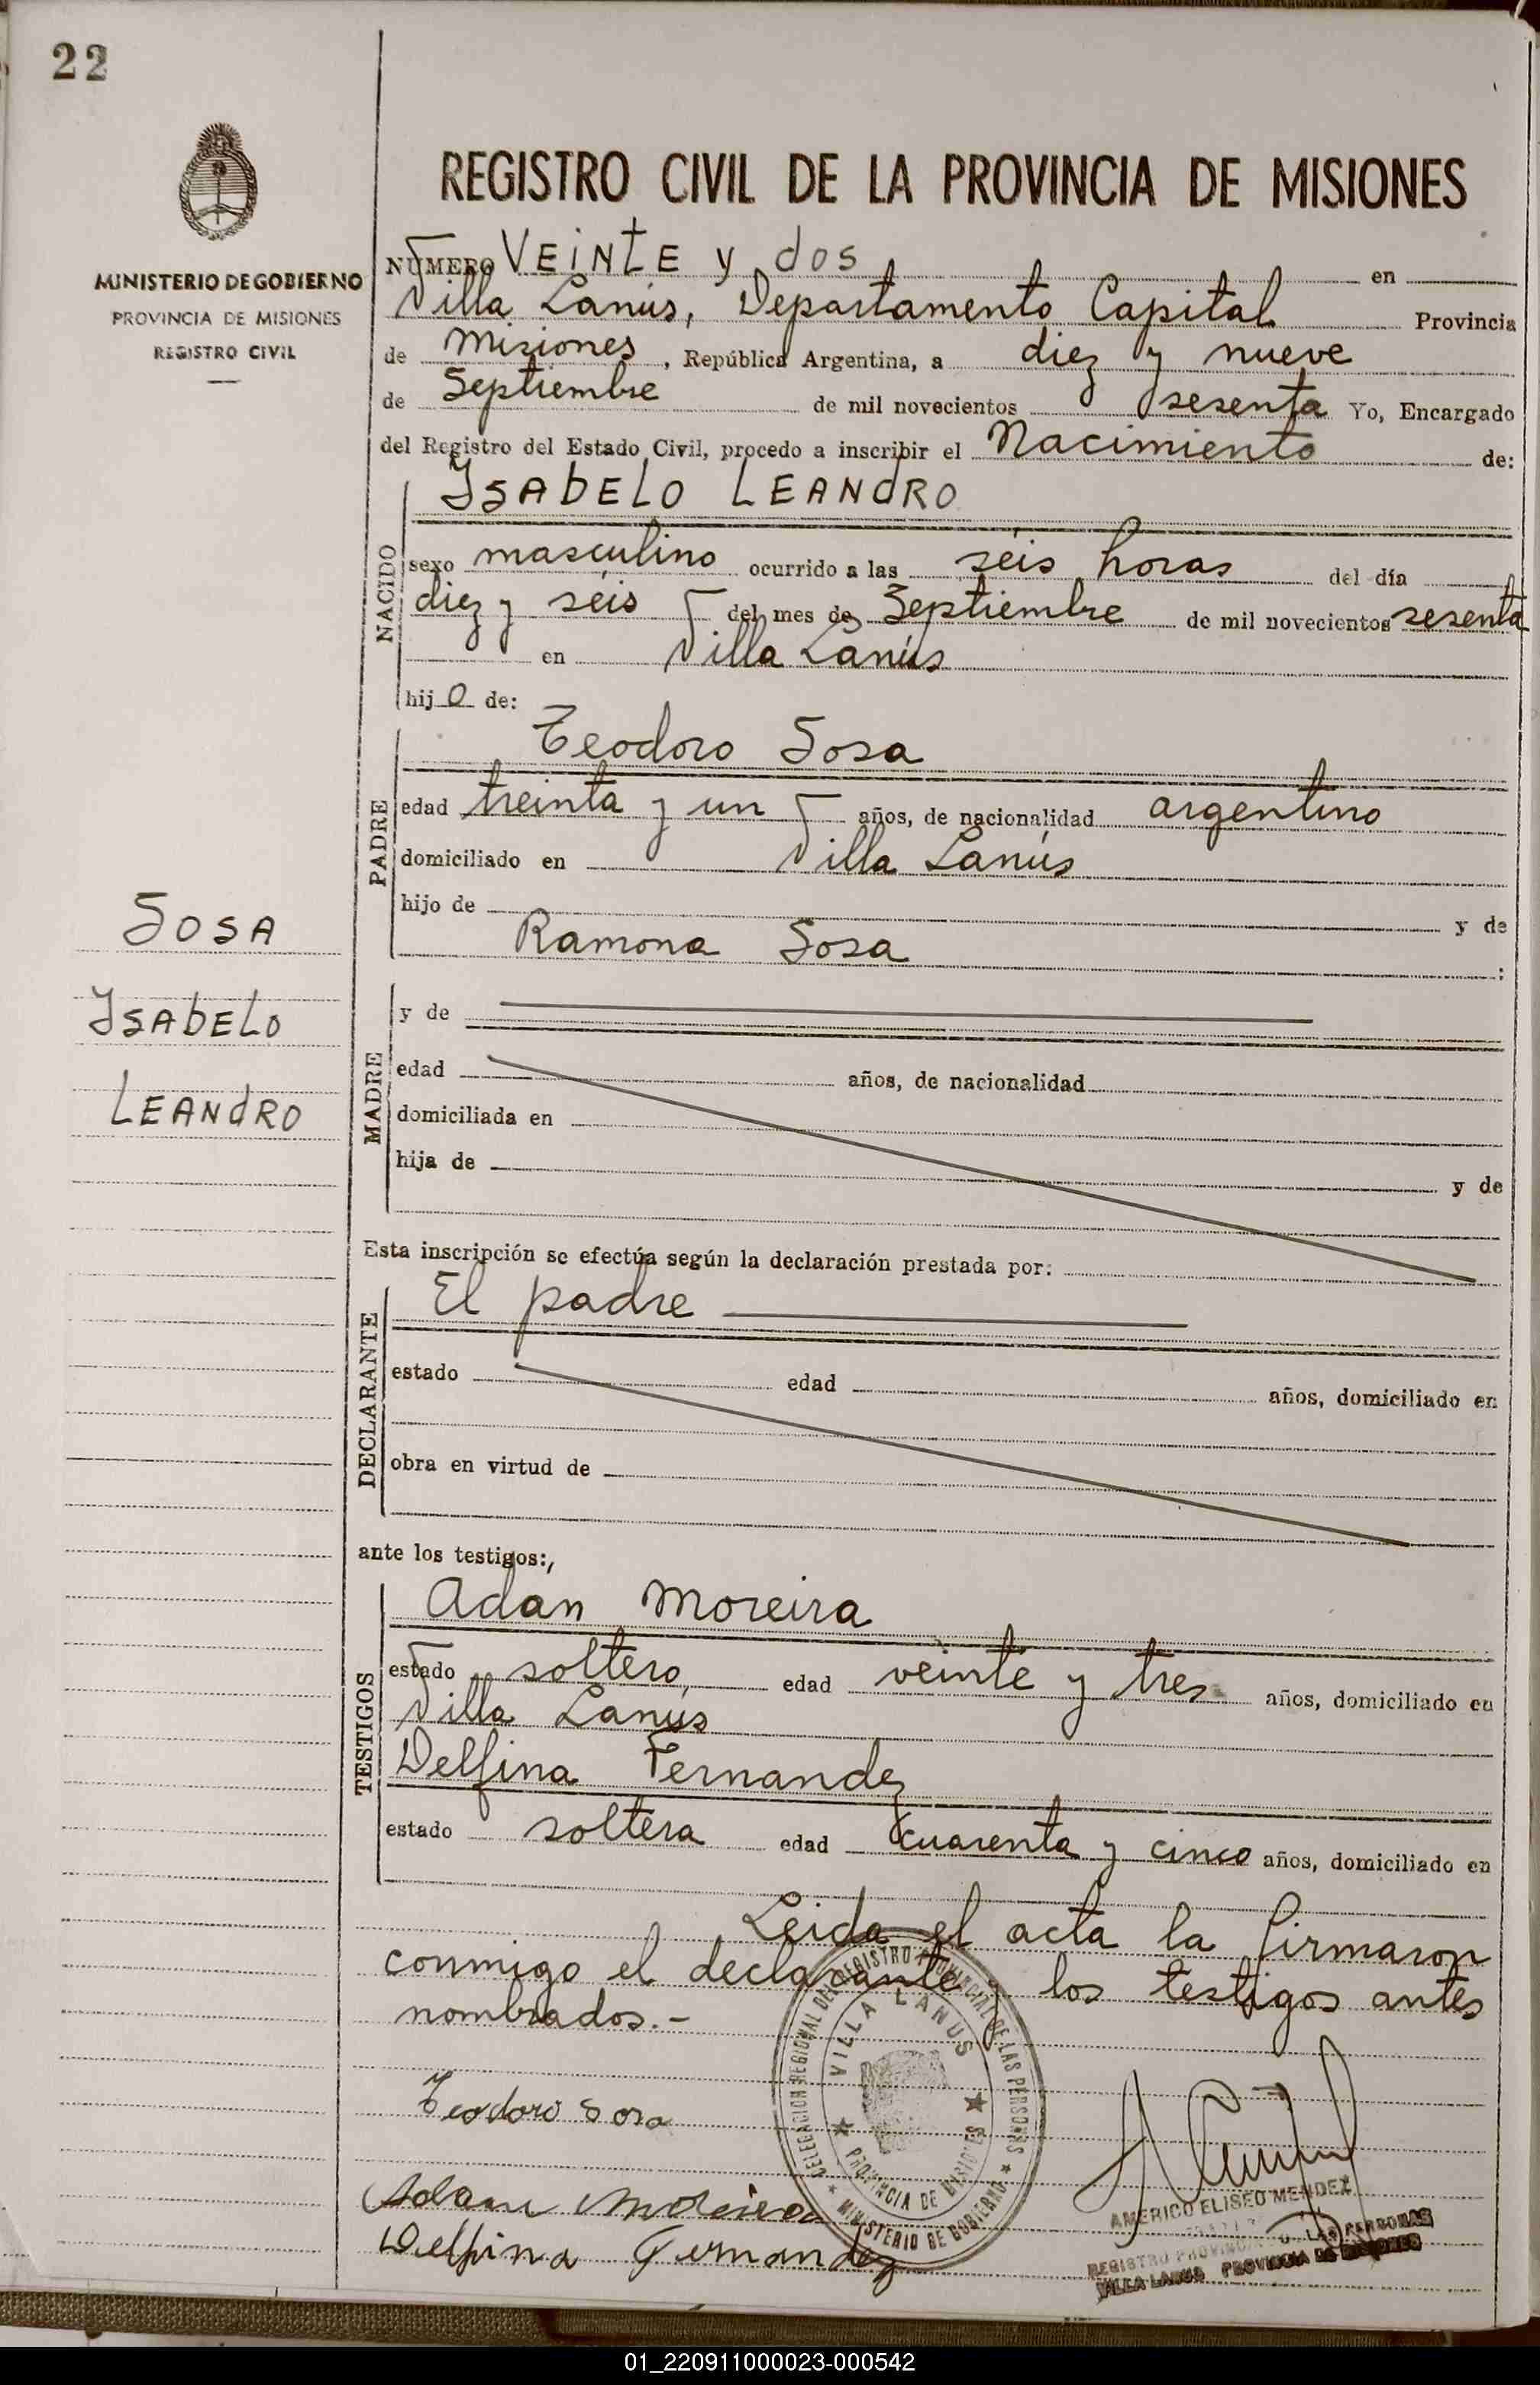 22
MINISTERIO DE GOBIERNO
PROVINCIA DE MISIONES
REGISTRO CIVIL
SOSA
ISABELO
LEANDRO
REGISTRO CIVIL DE LA PROVINCIA DE MISIONES
NÚMERO VEINTE y dos en
Villa Lanús, Departamento Capital Provincia
de Misiones, República Argentina, a diez y nueve
de Septiembre de mil novecientos sesenta Yo, Encargado
del Registro del Estado Civil, procedo a inscribir el Nacimiento de:
NACIDO
ISABELO LEANDRO
sexo masculino ocurrido a las séis horas del día
diez y séis del mes de Septiembre de mil novecientos sesenta
en Villa Lanús
hijo de:
PADRE
Teodoro Sosa
edad treinta y un años, de nacionalidad argentino
domiciliado en Villa Lanús
hijo de y de
Ramona Sosa :
MADRE
y de
edad años, de nacionalidad
domiciliada en
hija de y de
Esta inscripción se efectúa según la declaración prestada por:
DECLARANTE
El padre
estado edad años, domiciliado en
obra en virtud de
ante los testigos:,
TESTIGOS
Adán Moreira
estado soltero, edad veinte y tres años, domiciliado en
Villa Lanús
Delfina Fernandez
estado soltera edad cuarenta y cinco años, domiciliado en
Leida el acta la firmaron
conmigo el declarante y los testigos antes
nombrados.-
DELEGACION REGIONAL DEL REGISTRO PROVINCIAL DE LAS PERSONAS
VILLA LANUS
PROVINCIA DE MISIONES
MINISTERIO DE GOBIERNO
Teodoro Sosa
Adam Moreira
Delfina Fernandez
AMERICO ELISEO MENDEZ
REGISTRO PROVINCIAL LAS PERSONAS
VILLA LANUS PROVINCIA DE MISIONES
01_220911000023-000542